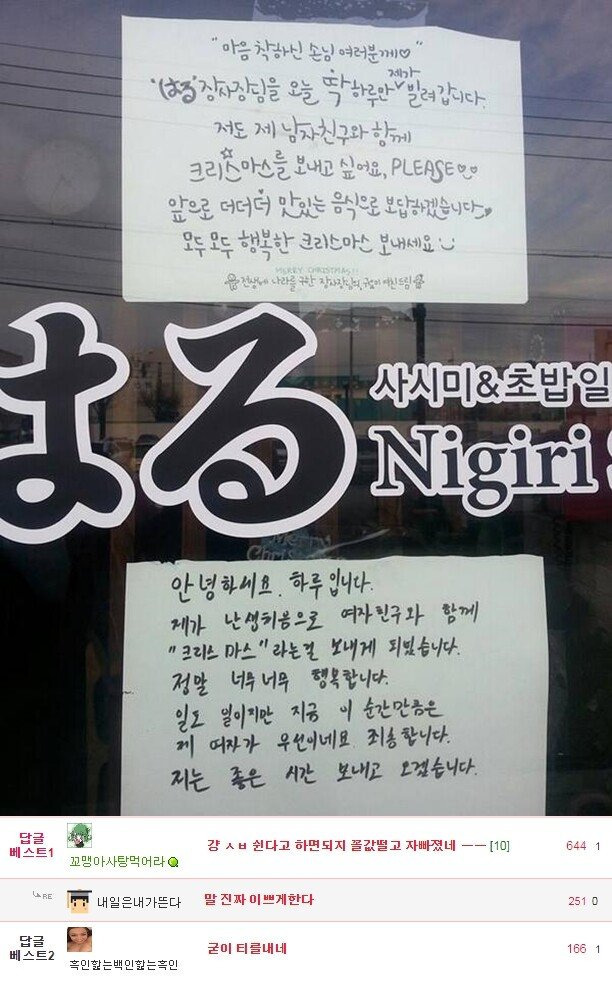 "마음 착하신 손님 여러분께♡"
'はる' 장사장님을 오늘 딱 하루만 제가 빌려갑니다.
저도 제 남자친구와 함께
크리스마스를 보내고 싶어요, PLEASE♡♡
앞으로 더더더 맛있는 음식으로 보답하겠습니다
모두모두 행복한 크리스마스 보내세요
MERRY CHRISTMAS!!
전생에 나라를 구한 장사장님의 여친드림
はる
사시미&초밥일
Nigiri
안녕하세요. 하루입니다.
제가 난생처음으로 여자친구와 함께
"크리스마스"라는걸 보내게 되었습니다.
정말 너무너무 행복합니다.
일도 일이지만 지금 이 순간만큼은
제 여자가 우선이네요 죄송합니다.
저는 좋은 시간 보내고 오겠습니다.
답글 베스트1
꼬맹아사탕먹어라
걍 ㅅㅂ 쉰다고 하면되지 꼴값떨고 자빠졌네 ㅡㅡ [10]
644 1
RE
내일은내가뜬다
말 진짜 이쁘게한다
251 0
답글 베스트2
흑인핥는백인핥는흑인
굳이 티를내네
166 1